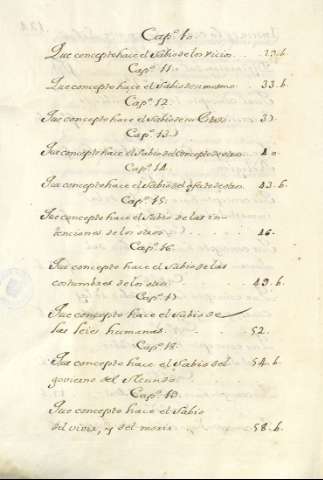 Cap.º 10.
Que concepto hace el Sabio de los vicios. . . 29.b.
Cap.º 11.
Que concepto hace el Sabio de si mismo. . 33.b.
Cap.º 12.
Que concepto hace el Sabio de su 37.
Cap.º 13.
Que concepto hace el Sabio del concepto de otros. 40.
Cap.º 14.
Que concepto hace el Sabio del afecto de otros. 43.b.
Cap.º 15.
Que concepto hace el Sabio de las in-
tenciones de los otros. . . . 46.
Cap.º 16.
Que concepto hace el Sabio de las
costumbres de los otros . . . . 49.b.
Cap.º 17.
Que concepto hace el Sabio de
las leies humanas. . . . . 52.
Cap.º 18.
Que concepto hace el Sabio del
govierno del Mundo. . . . . 54.b.
Cap.º 19.
Que concepto hace el Sabio
del vivir, y del morir. . . . . 58.b.